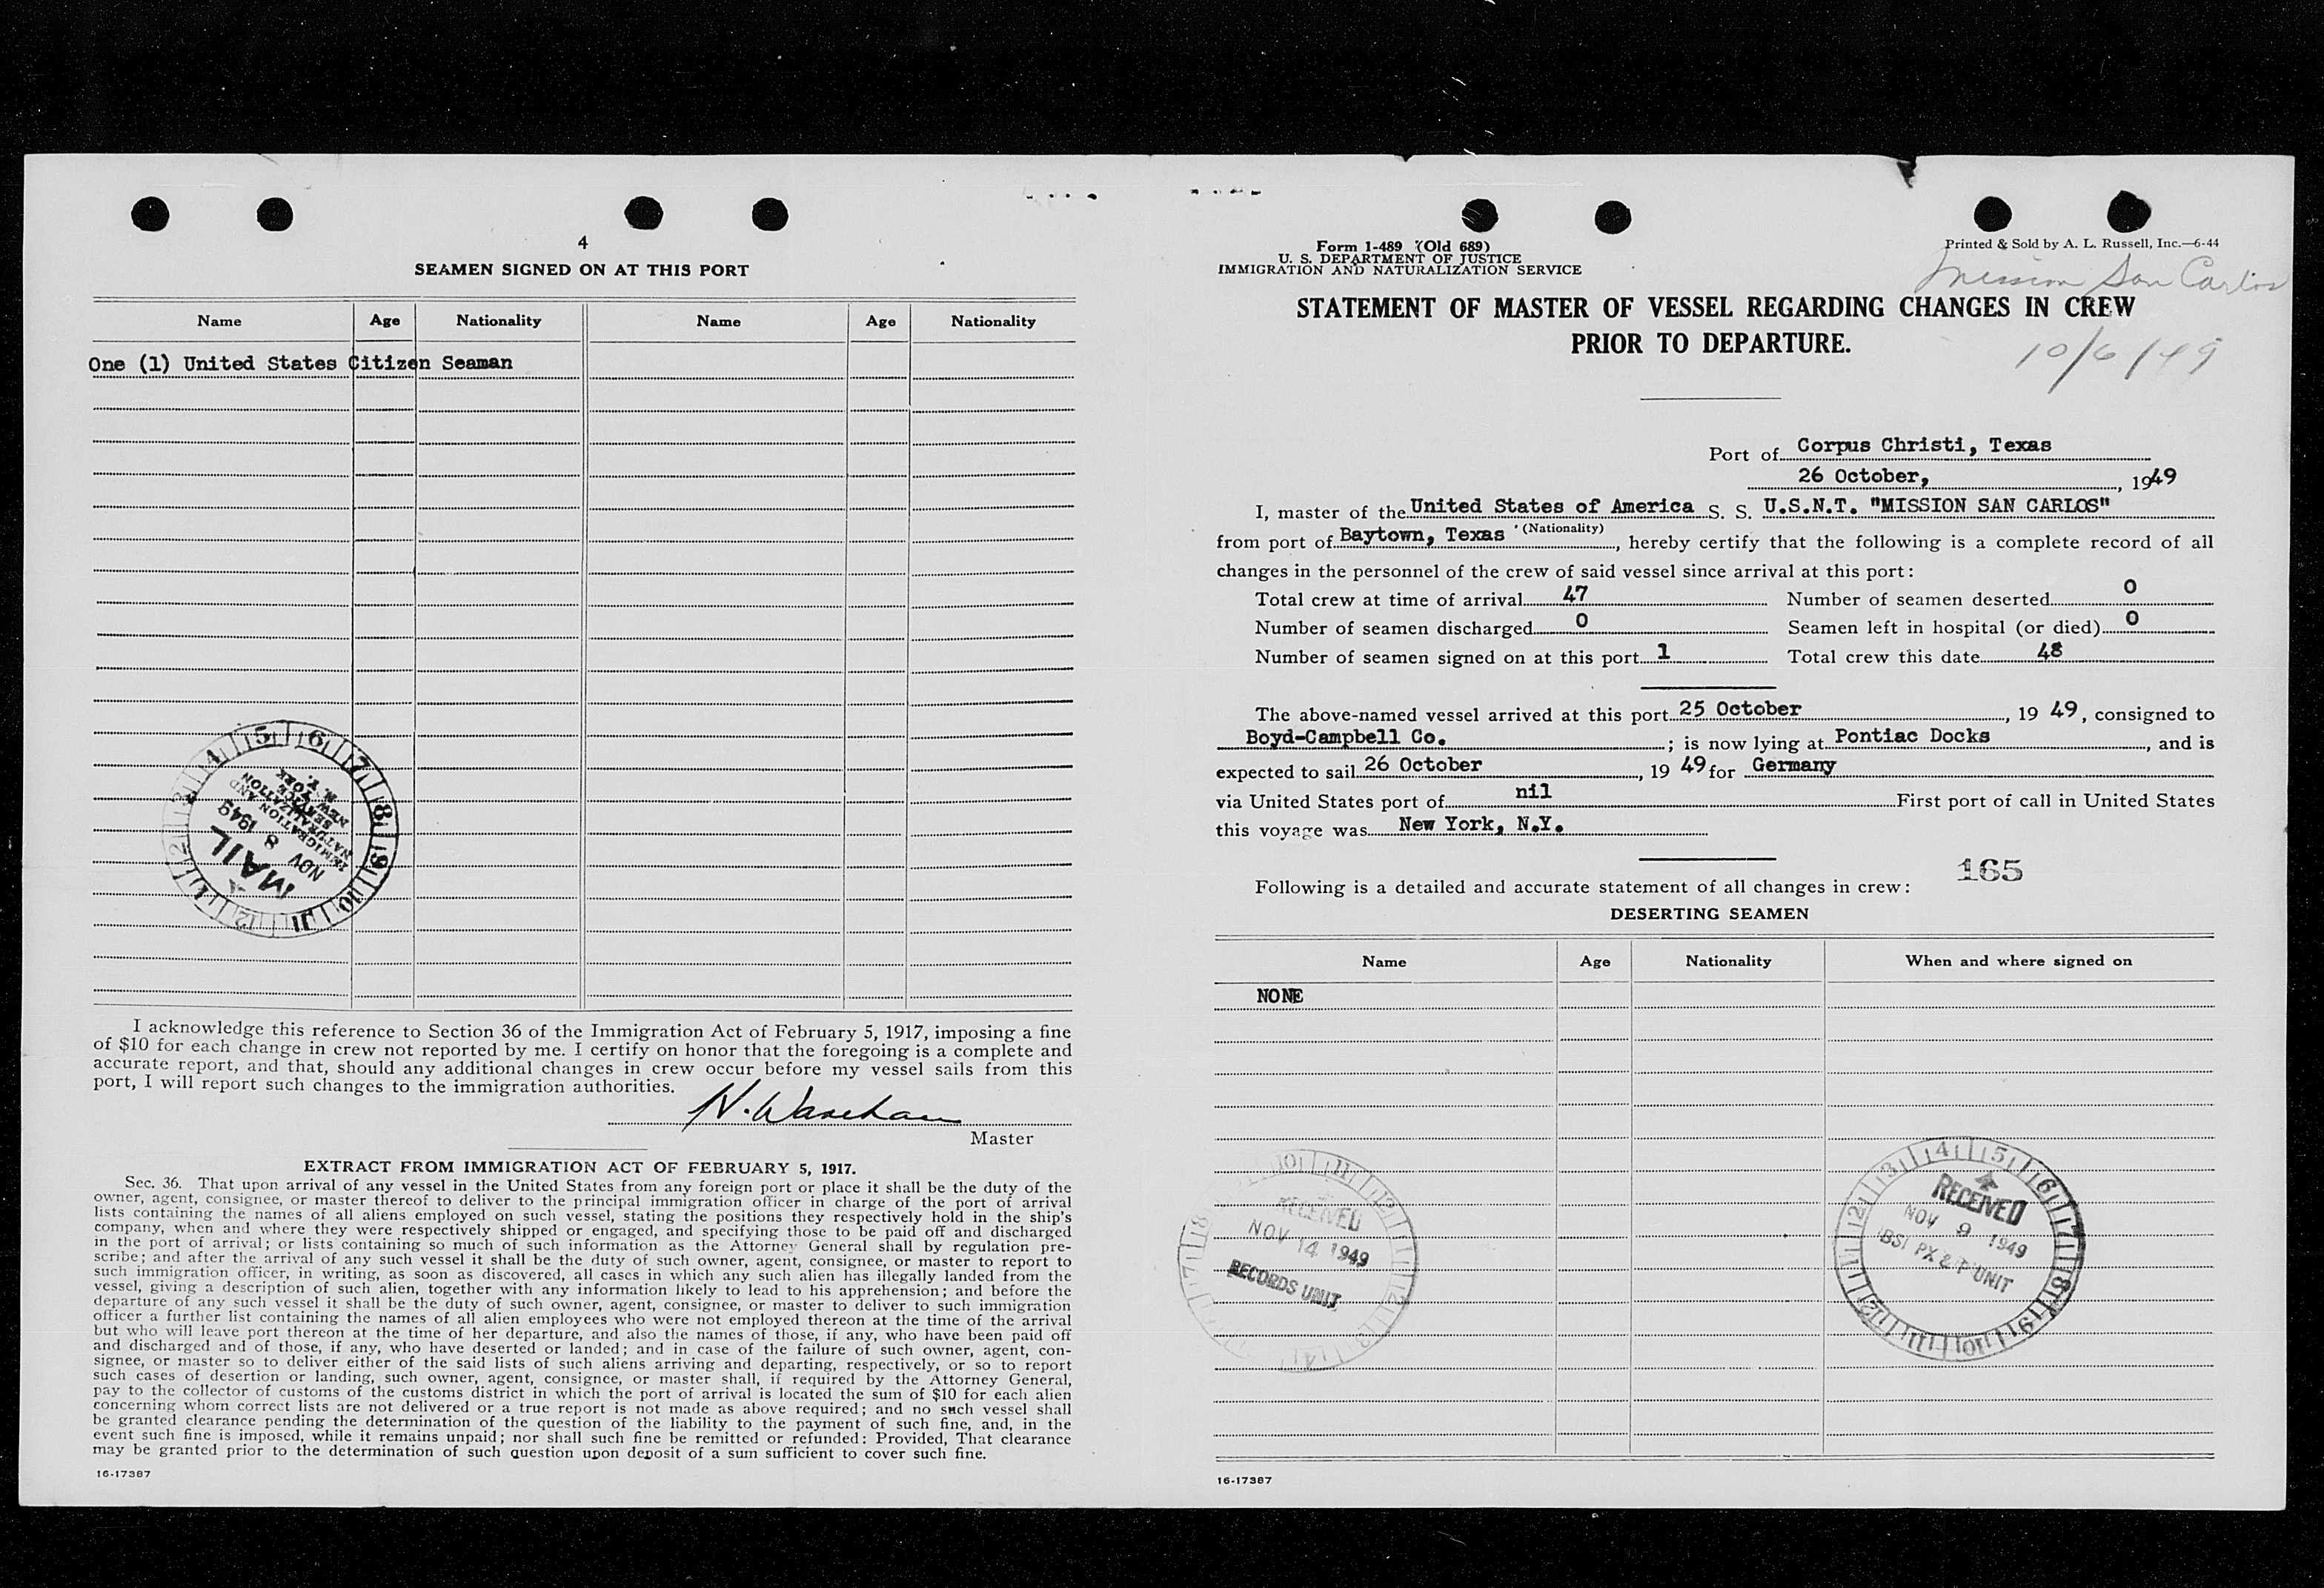 4
SEAMEN SIGNED ON AT THIS PORT
Name Age Nationality Name Age Nationality
One (1) United States Citizen Seaman
MAIL
NOV 8 1949
IMMIGRATION AND
NATURALIZATION
SERVICE
NEW YORK
N. Y.
I acknowledge this reference to Section 36 of the Immigration Act of February 5, 1917, imposing a fine
of $10 for each change in crew not reported by me. I certify on honor that the foregoing is a complete and
accurate report, and that, should any additional changes in crew occur before my vessel sails from this
port, I will report such changes to the immigration authorities.
N. Wareham
Master
EXTRACT FROM IMMIGRATION ACT OF FEBRUARY 5, 1917.
Sec. 36. That upon arrival of any vessel in the United States from any foreign port or place it shall be the duty of the
owner, agent, consignee, or master thereof to deliver to the principal immigration officer in charge of the port of arrival
lists containing the names of all aliens employed on such vessel, stating the positions they respectively hold in the ship's
company, when and where they were respectively shipped or engaged, and specifying those to be paid off and discharged
in the port of arrival; or lists containing so much of such information as the Attorney General shall by regulation pre-
scribe; and after the arrival of any such vessel it shall be the duty of such owner, agent, consignee, or master to report to
such immigration officer, in writing, as soon as discovered, all cases in which any such alien has illegally landed from the
vessel, giving a description of such alien, together with any information likely to lead to his apprehension; and before the
departure of any such vessel it shall be the duty of such owner, agent, consignee, or master to deliver to such immigration
officer a further list containing the names of all alien employees who were not employed thereon at the time of the arrival
but who will leave port thereon at the time of her departure, and also the names of those, if any, who have been paid off
and discharged and of those, if any, who have deserted or landed; and in case of the failure of such owner, agent, con-
signee, or master so to deliver either of the said lists of such aliens arriving and departing, respectively, or so to report
such cases of desertion or landing, such owner, agent, consignee, or master shall, if required by the Attorney General,
pay to the collector of customs of the customs district in which the port of arrival is located the sum of $10 for each alien
concerning whom correct lists are not delivered or a true report is not made as above required; and no such vessel shall
be granted clearance pending the determination of the question of the liability to the payment of such fine, and, in the
event such fine is imposed, while it remains unpaid; nor shall such fine be remitted or refunded: Provided, That clearance
may be granted prior to the determination of such question upon deposit of a sum sufficient to cover such fine.
16-17387
Form 1-489 (Old 689)
U. S. DEPARTMENT OF JUSTICE
IMMIGRATION AND NATURALIZATION SERVICE
Printed & Sold by A. L. Russell, Inc.—6-44
Mission San Carlos
STATEMENT OF MASTER OF VESSEL REGARDING CHANGES IN CREW
PRIOR TO DEPARTURE.
10/6/49
Port of Corpus Christi, Texas
26 October, 1949
I, master of the United States of America S. S. U.S.N.T. "MISSION SAN CARLOS"
(Nationality)
from port of Baytown, Texas, hereby certify that the following is a complete record of all
changes in the personnel of the crew of said vessel since arrival at this port:
Total crew at time of arrival 47 Number of seamen deserted 0
Number of seamen discharged 0 Seamen left in hospital (or died) 0
Number of seamen signed on at this port 1 Total crew this date 48
The above-named vessel arrived at this port 25 October, 19 49, consigned to
Boyd-Campbell Co.; is now lying at Pontiac Docks, and is
expected to sail 26 October, 19 49 for Germany
via United States port of nil First port of call in United States
this voyage was New York, N.Y.
165
Following is a detailed and accurate statement of all changes in crew:
DESERTING SEAMEN
Name Age Nationality When and where signed on
NONE
RECEIVED
NOV 14 1949
RECORDS UNIT
RECEIVED
NOV 9 1949
BSI PX & P UNIT
16-17387